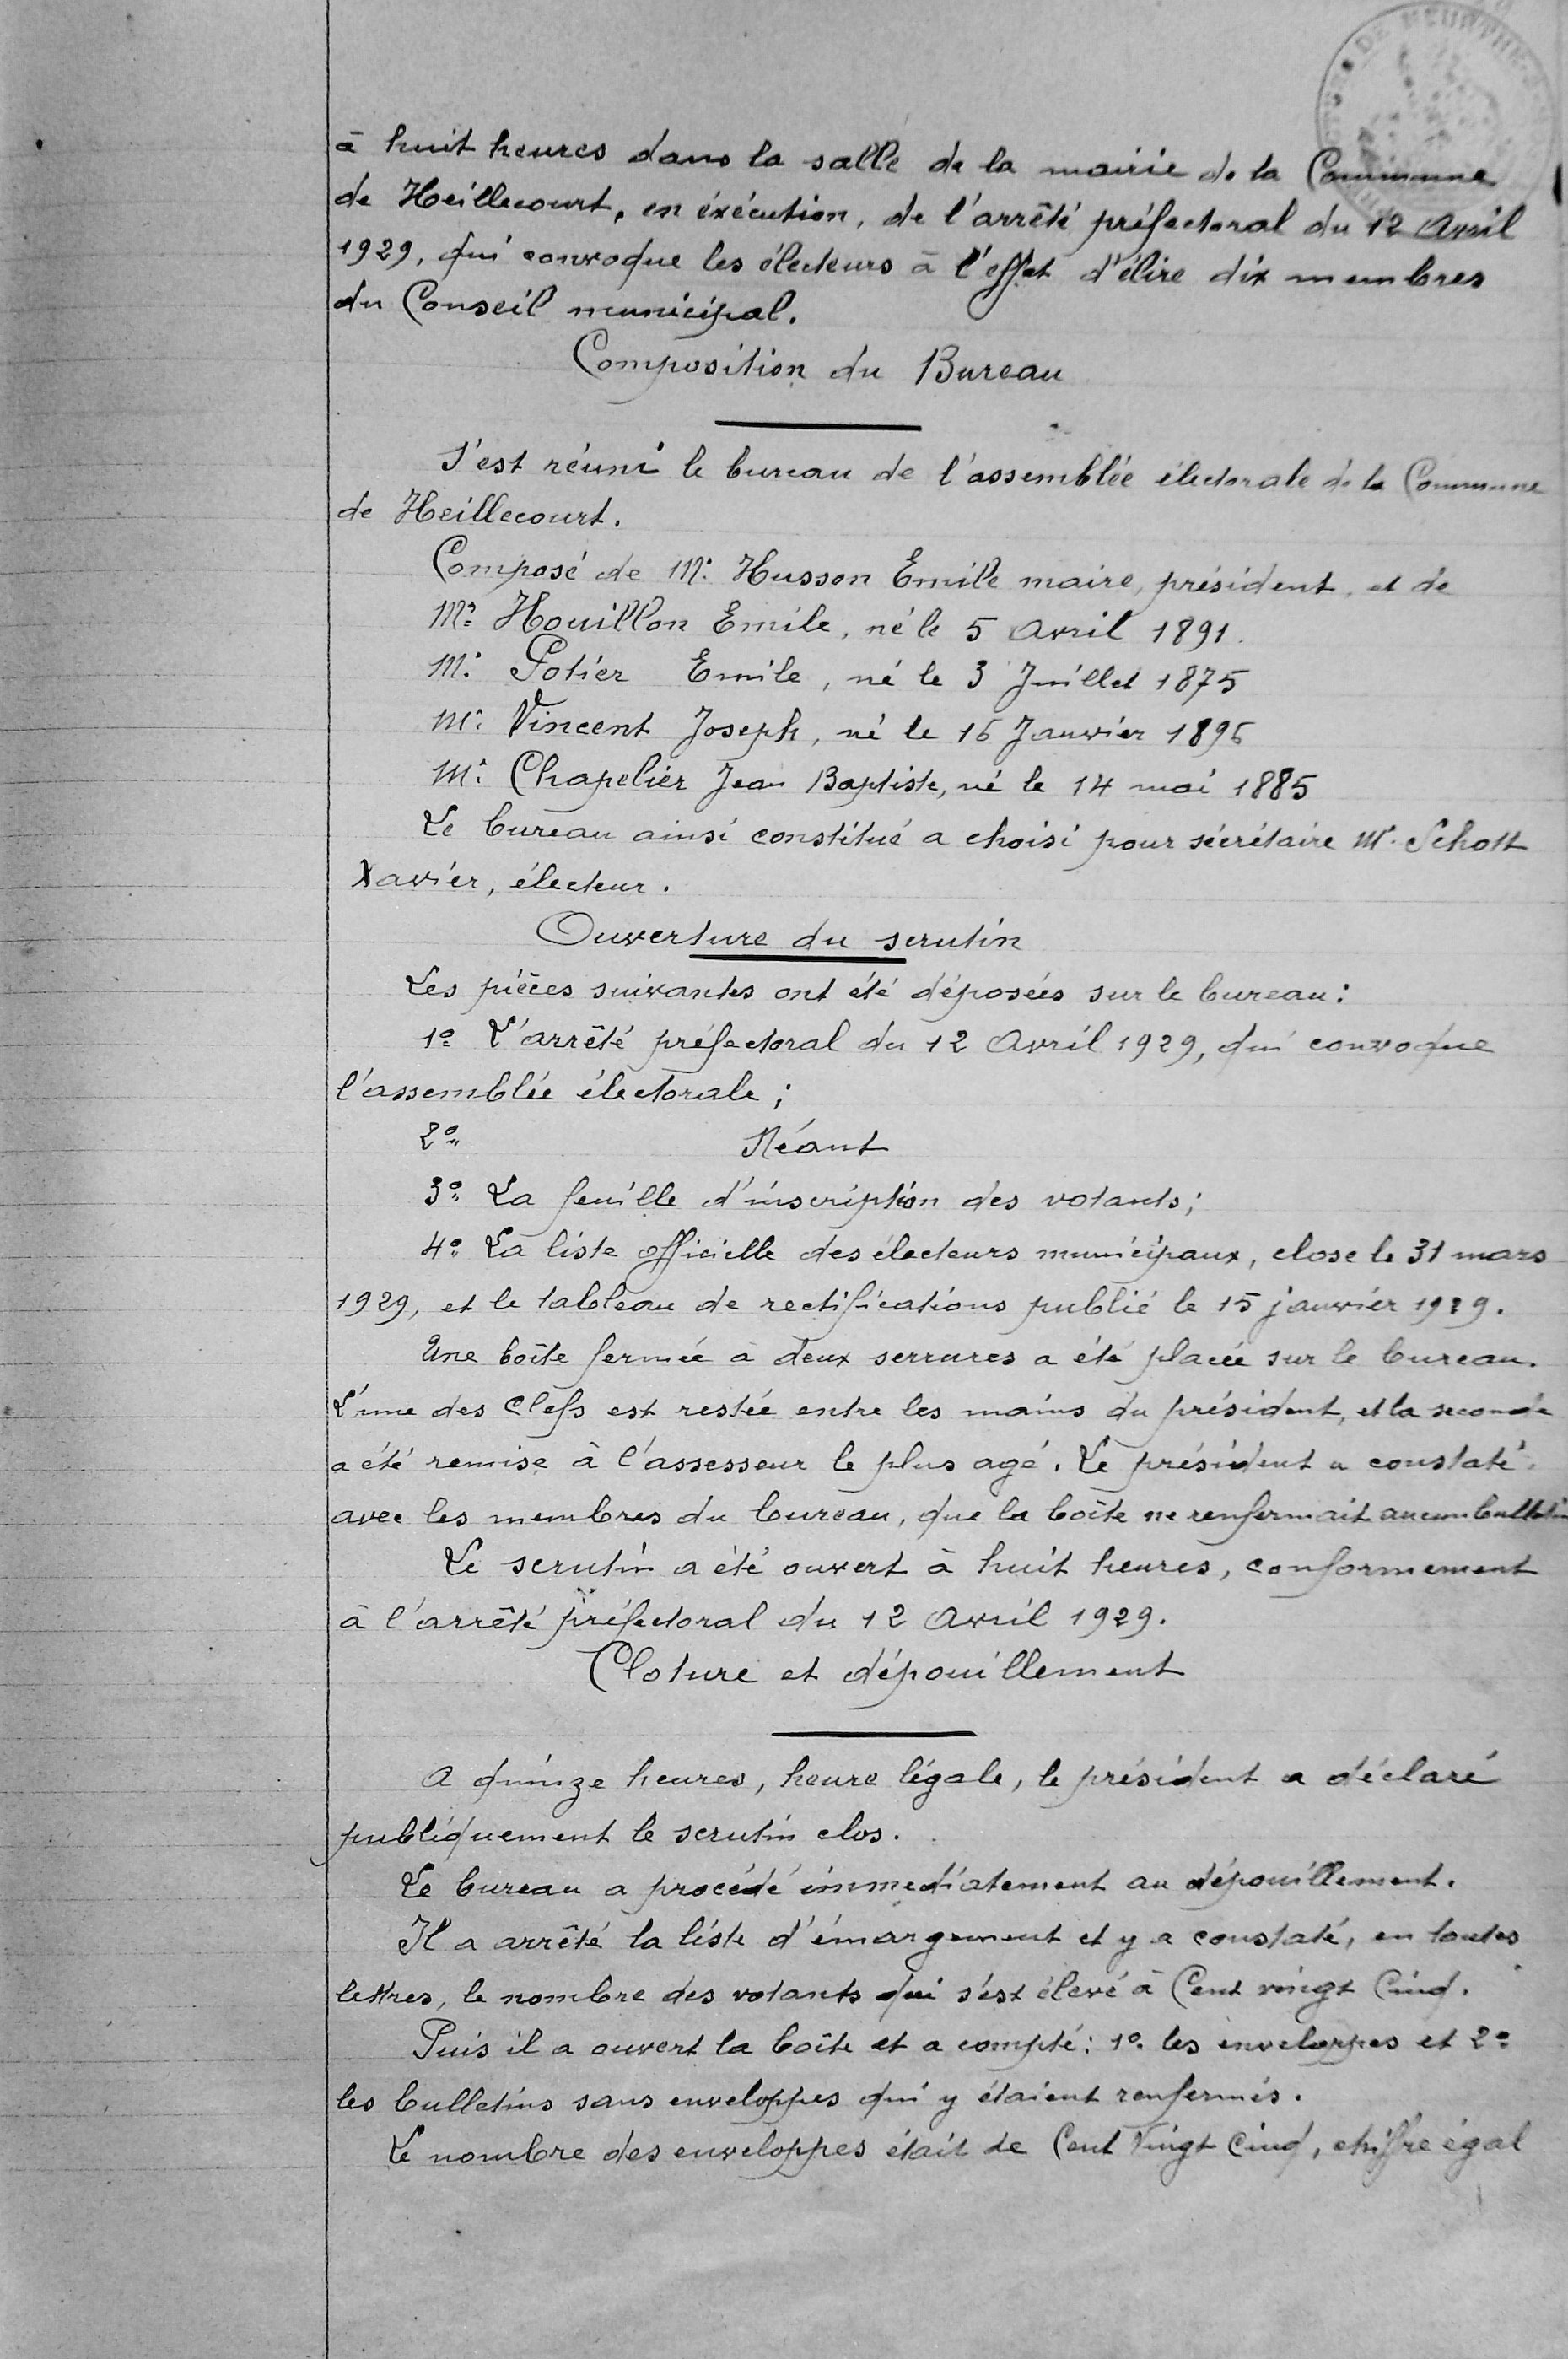 à huit heures dans la salle de la mairie de la Commune
de Heillecourt, en éxécution, de l'arrêté préfectoral du 12 Avril
1929, qui convoque les électeurs à l'effet d'élire dix membres
du Conseil municipal.
Composition du Bureau
S'est réuni le bureau de l'assemblée électorale de la Commune
de Heillecourt.
Composé de Mr. Husson Emile maire, président, et de
Mr. Houillon Emile, né le 5 Avril 1891.
Mr. Potier Emile, né le 3 Juillet 1875
Mr. Vincent Joseph, né le 16 Janvier 1896
Mr. Chapelier Jean Baptiste, né le 14 mai 1885
Le bureau ainsi constitué a choisi pour sécrétaire Mr. Schott
Xavier, électeur.
Ouverture du scrutin
Les pièces suivantes ont été déposées sur le bureau:
1º L'arrêté préfectoral du 12 Avril 1929, qui convoque
l'assemblée électorale;
2º Néant
3º La feuille d'inscription des votants;
4º La liste officielle des électeurs municipaux, close le 31 mars
1929, et le tableau de rectifications publié le 15 janvier 1929.
Une boîte fermée à deux serrures a été placée sur le bureau.
L'une des Clefs est restée entre les mains du président, et la seconde
a été remise à l'assesseur le plus agé. Le président a constaté,
avec les membres du bureau, que la boîte ne renfermait aucun bulletin
Le scrutin a été ouvert à huit heures, conformement
à l'arrêté préfectoral du 12 Avril 1929.
Cloture et dépouillement
A quinze heures, heure légale, le président a déclaré
publiquement le scrutin clos.
Le bureau a procédé immediatement au dépouillement.
Il a arrêté la liste d'émargement et y a constaté, en toutes
lettres, le nombre des votants qui s'est élevé à Cent vingt Cinq.
Puis il a ouvert la boîte et a compté: 1º les enveloppes et 2º
les bulletins sans enveloppes qui y étaient renfermés.
Le nombre des enveloppes était de Cent Vingt Cinq, chiffre égal